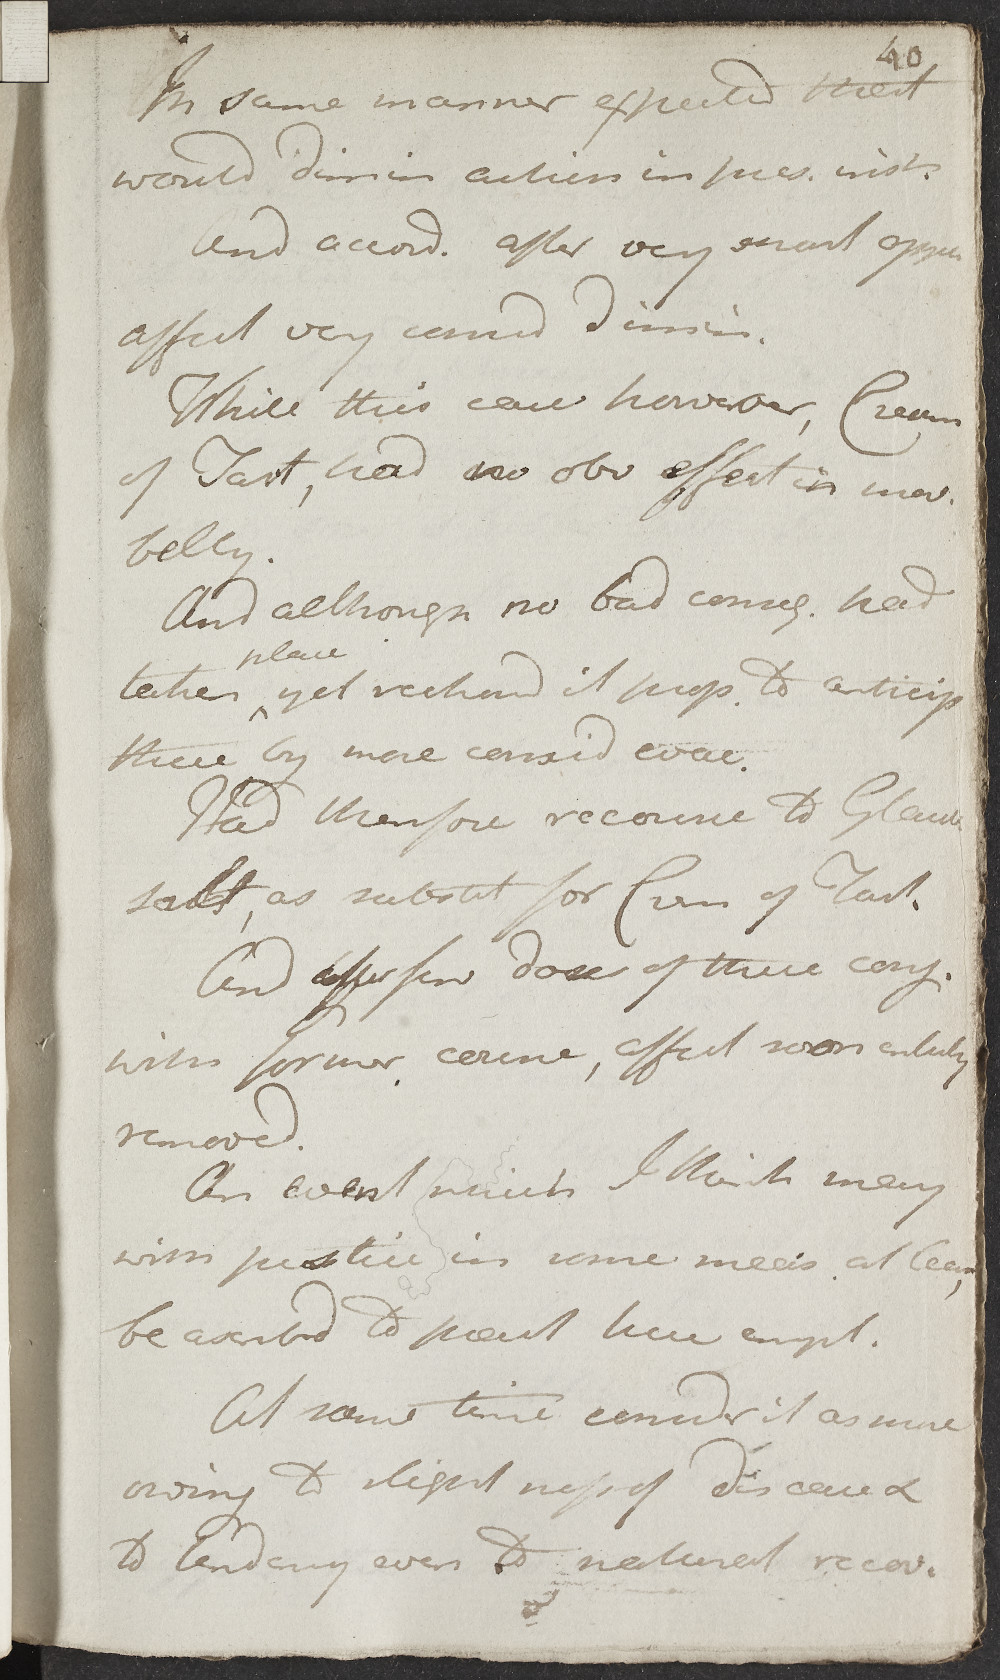 40
In same manner expected that
would dimin action in pres. inst.
And accord. after very short oppor
affect very consid dimin.
While this case however, Cream
of Tart, had no obv effect in mov.
belly.
And although no bad conseq. had
place
taken yet reckond it prop. to anticip
these by more consid evac.
Had therefore recourse to Glaub
salt, as substit for Crem of Tart.
And after few doses of these conj.
with former course, affect soon entirely
removed.
An event which I think may
with justice in some meas. at least,
be ascribd to pract here empl.
At same time consider it as more
owing to slightness of disease &
to tendency even to natural recov.